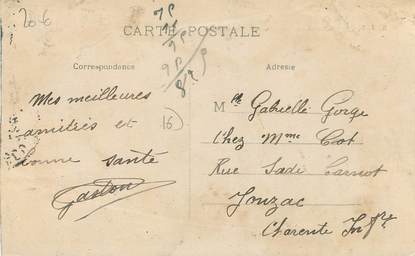 206
CARTE POSTALE
Correspondance
Adresse
Mes meilleures
amitiés et
bonne santé
Gaston
16)
Mlle Gabrielle Gorge
Chez Mme Cot
Rue Sadi Carnot
Jonzac
Charente Infre